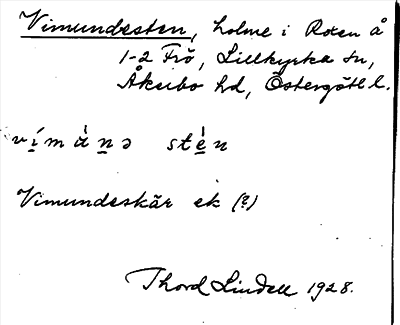 Vimundesten, holme i Roxen å
1-2 Frö, Lillkyrka sn,
Åkerbo hd, Östergötl l.
vímànə stén
Vimundeskär ek (?)
Thord Lindell 1928.